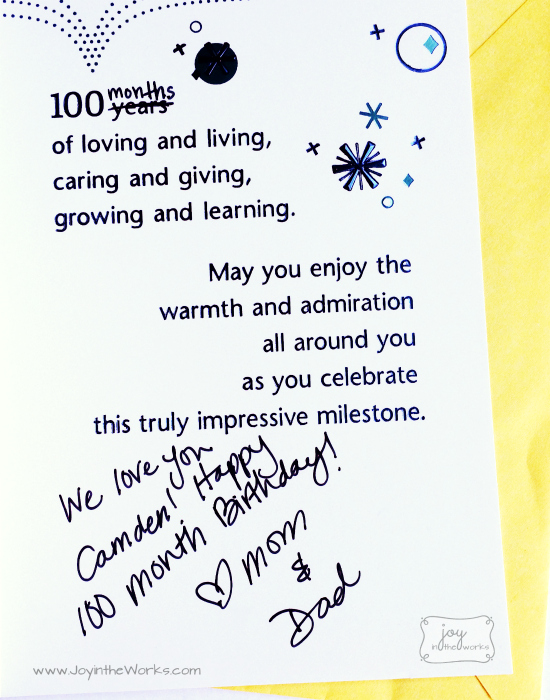 months
100 years
of loving and living,
caring and giving,
growing and learning.
May you enjoy the
warmth and admiration
all around you
as you celebrate
this truly impressive milestone.
We love you
Camden! Happy
100 month Birthday!
♡ Mom
&
Dad
joy
in the works
www.JoyintheWorks.com